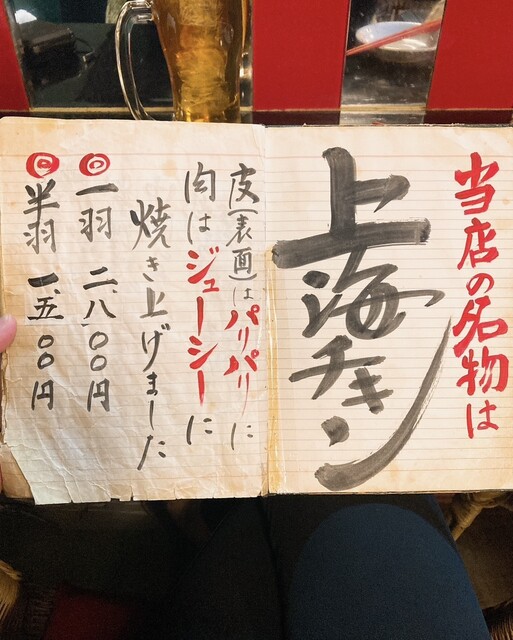 当店の名物は
上海チキン
皮(表面)はパリパリに
肉はジューシーに
焼き上げました
◎一羽 二、八〇〇円
◎半羽 一、五〇〇円